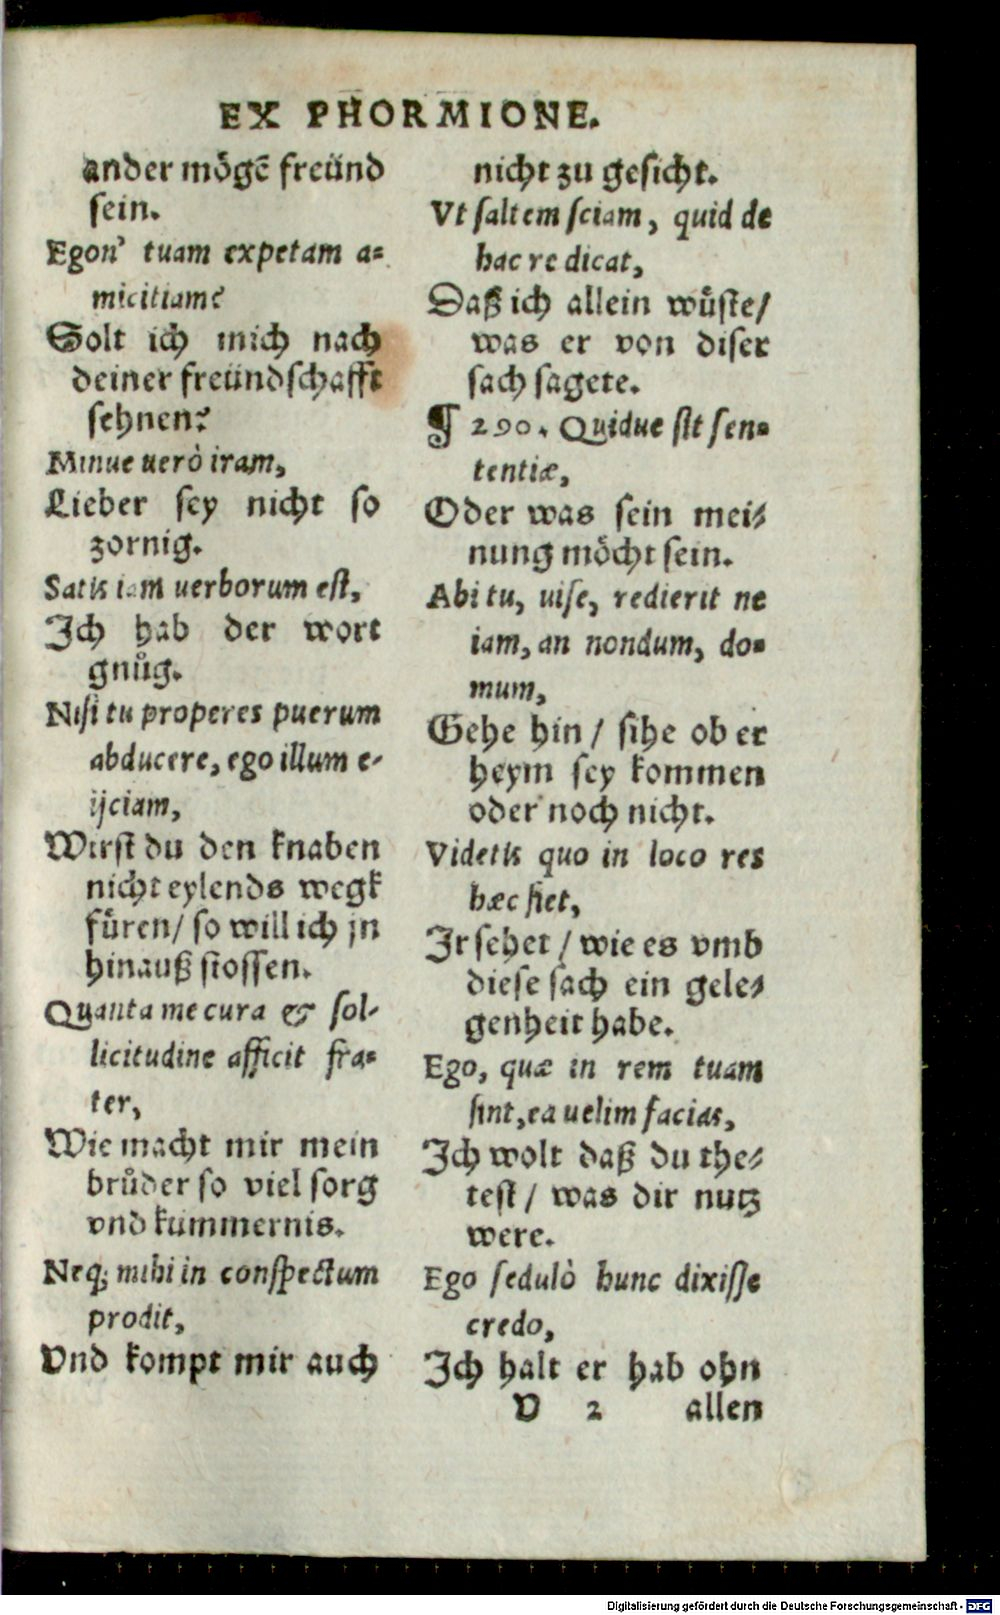 EX PHORMIONE.
ander mögẽ freünd
sein.
Egon' tuam expetam a=
micitiam?
Solt ich mich nach
deiner freündschafft
sehnen?
Minue uerò iram,
Lieber sey nicht so
zornig.
Satis iam uerborum est,
Ich hab der wort
gnůg.
Nisi tu properes puerum
abducere, ego illum e-
ijciam,
Wirst du den knaben
nicht eylends wegk
füren/ so will ich jn
hinauß stossen.
Quanta me cura & sol-
licitudine afficit fra=
ter,
Wie macht mir mein
brůder so viel sorg
vnd kummernis.
Neq; mihi in conspectum
prodit,
Vnd kompt mir auch
nicht zu gesicht.
Vt saltem sciam, quid de
hac re dicat,
Daß ich allein wüste/
was er von diser
sach sagete.
¶ 290. Quidue sit sen=
tentiæ,
Oder was sein mei=
nung möcht sein.
Abi tu, uise, redierit ne
iam, an nondum, do=
mum,
Gehe hin / sihe ob er
heym sey kommen
oder noch nicht.
Videtis quo in loco res
hæc siet,
Ir sehet / wie es vmb
diese sach ein gele=
genheit habe.
Ego, quæ in rem tuam
sint, ea uelim facias,
Ich wolt daß du the=
test / was dir nutz
were.
Ego sedulò hunc dixisse
credo,
Ich halt er hab ohn
V 2 allen
Digitalisierung gefördert durch die Deutsche Forschungsgemeinschaft - DFG